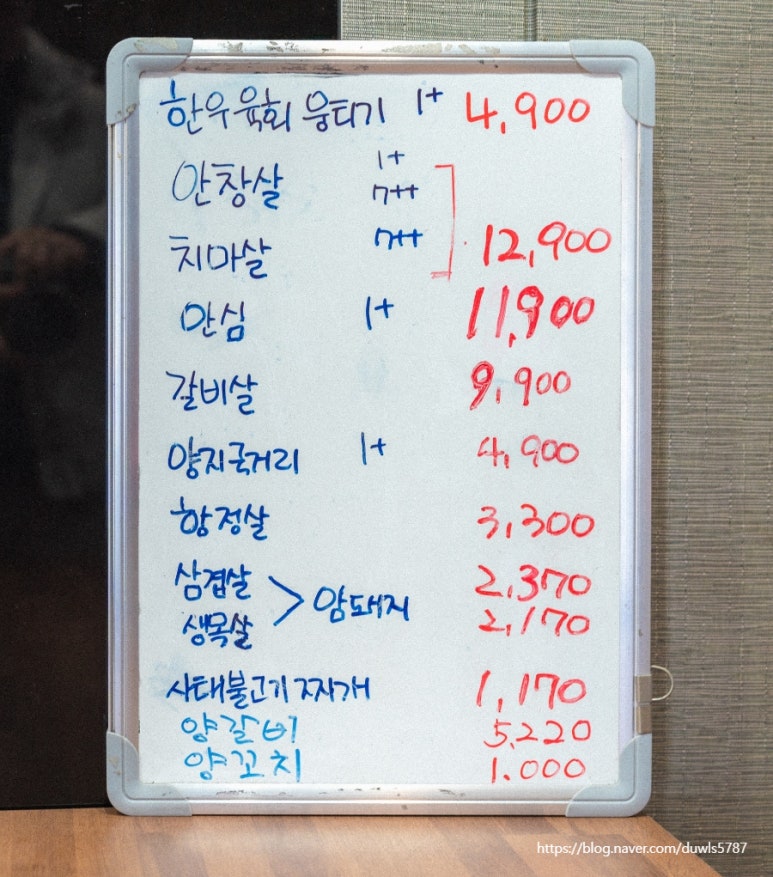 한우육회 뭉티기 1+ 4,900
안창살 1+ 7++
치마살 7++ 12,900
안심 1+ 11,900
갈비살 9,900
양지국거리 1+ 4,900
항정살 3,300
삼겹살 > 암돼지 2,370
생목살 2,170
사태불고기찌개 1,170
양갈비 5,220
양꼬치 1.000
https://blog.naver.com/duwls5787